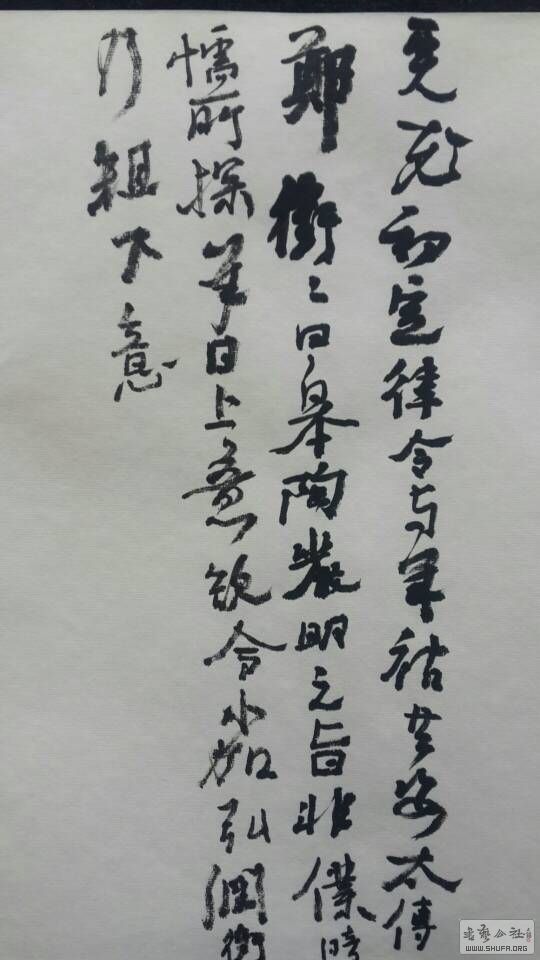 賈充初定律令与羊祜共咨太傅
鄭衝〻曰皋陶嚴明之旨非僕暗
懦所探羊曰上意欲令小加弘潤衝
乃粗下意
书艺公社
WWW.SHUFA.ORG